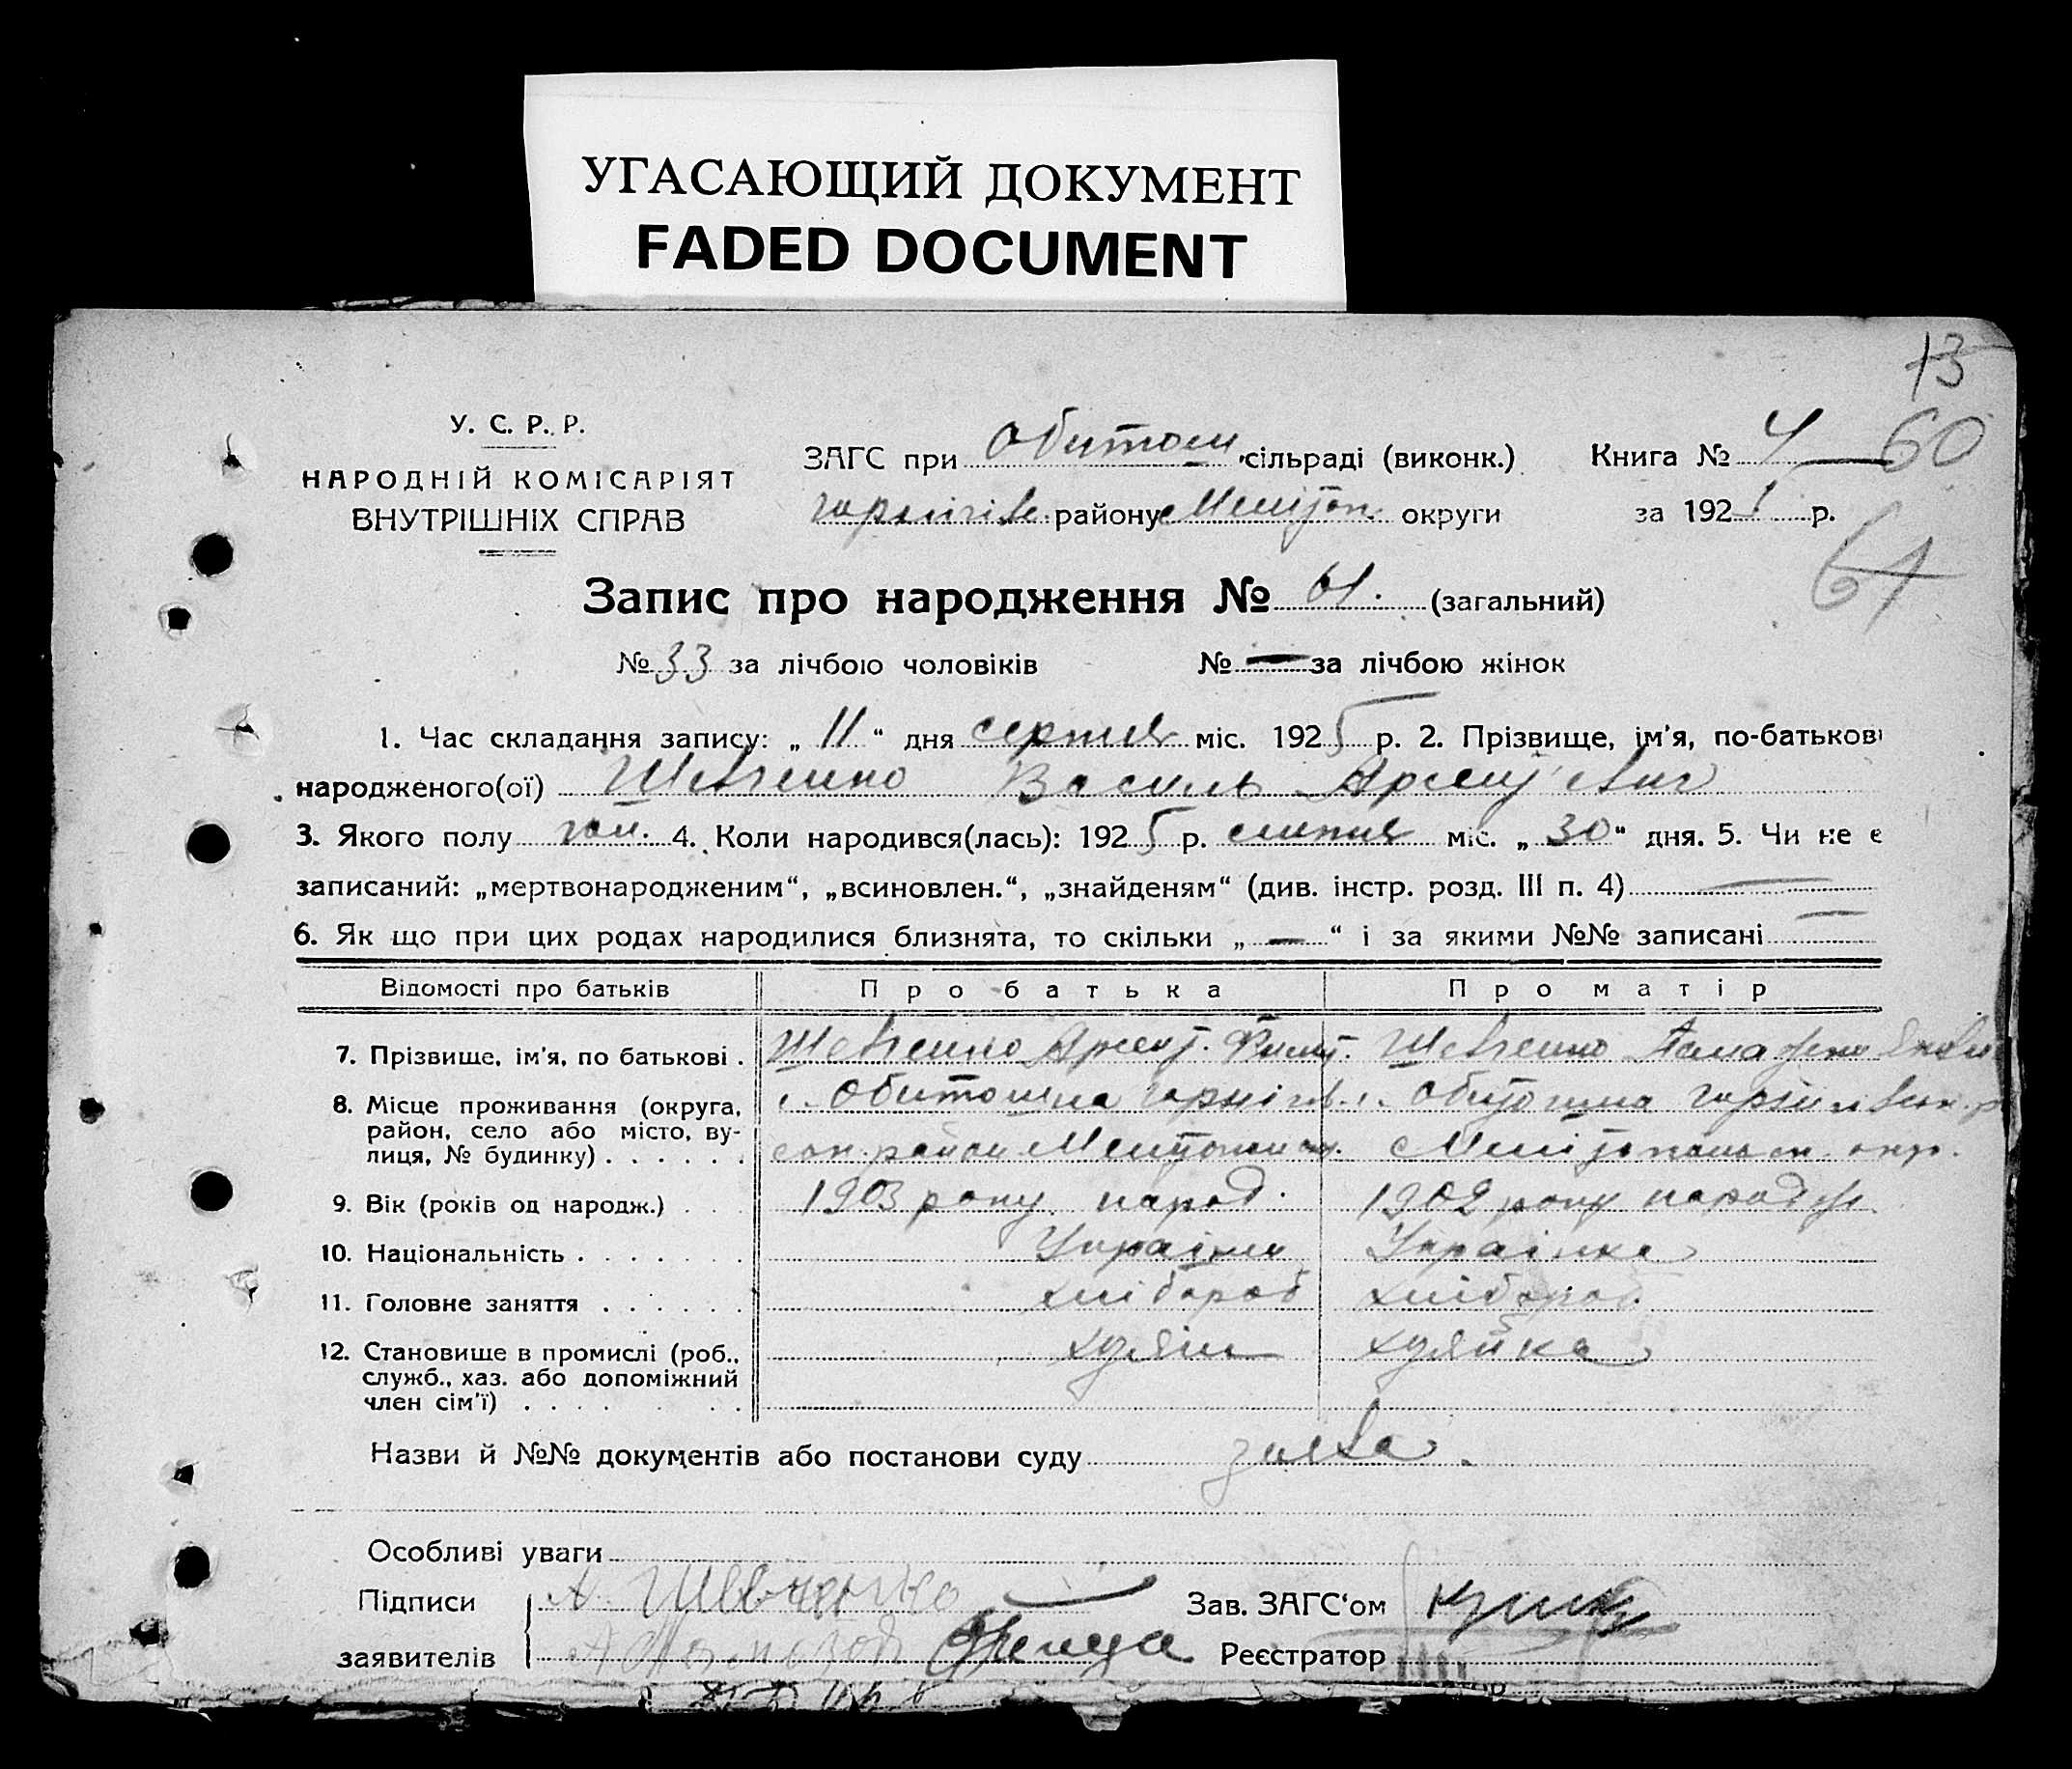 УГАСАЮЩИЙ ДОКУМЕНТ
FADED DOCUMENT
13
У. С. Р. Р.
НАРОДНІЙ КОМІСАРІЯТ
ВНУТРІШНІХ СПРАВ
ЗАГС при Обиточн. сільраді (виконк.)
району Меліт́оп. округи
Книга № 4 60
за 192 р.
61
Запис про народження № 61. (загальний)
№ 33 за лічбою чоловіків № — за лічбою жінок
1. Час складання запису: „ 11 “ дня серпня міс. 1925 р. 2. Прізвище, ім'я, по-батькові
народженого(ої) Шевченко Василь Арсент́'евич
3. Якого полу чол. 4. Коли народився(лась): 1925 р. липня міс. „ 30 “ дня. 5. Чи не є
записаний: „мертвонародженим“, „всиновлен.“, „знайденям“ (див. інстр. розд. III п. 4) —
6. Як що при цих родах народилися близнята, то скільки „ — “ і за якими №№ записані —
Відомості про батьків Про батька Про матір
7. Прізвище, ім'я, по батькові . Шевченко Арсент. Шевченко
8. Місце проживання (округа,
район, село або місто, ву-
лиця, № будинку) . . . . . .
с. Обиточна с. Обиточна
район Мелітопол. окр. Мелітопольск. окр.
9. Вік (років од народж.) . . . 1903 року народ. 1902 року народж.
10. Національність . . . . . . . Українец Українка
11. Головне заняття . . . . . . хлібороб хлібороб
12. Становище в промислі (роб.,
служб., хаз. або допоміжний
член сім'ї) . . . . . . .
хузяїн хузяйка
Назви й №№ документів або постанови суду заява.
Особливі уваги
Підписи
заявителів
А. Шевченко
Зав. ЗАГС'ом
Реєстратор